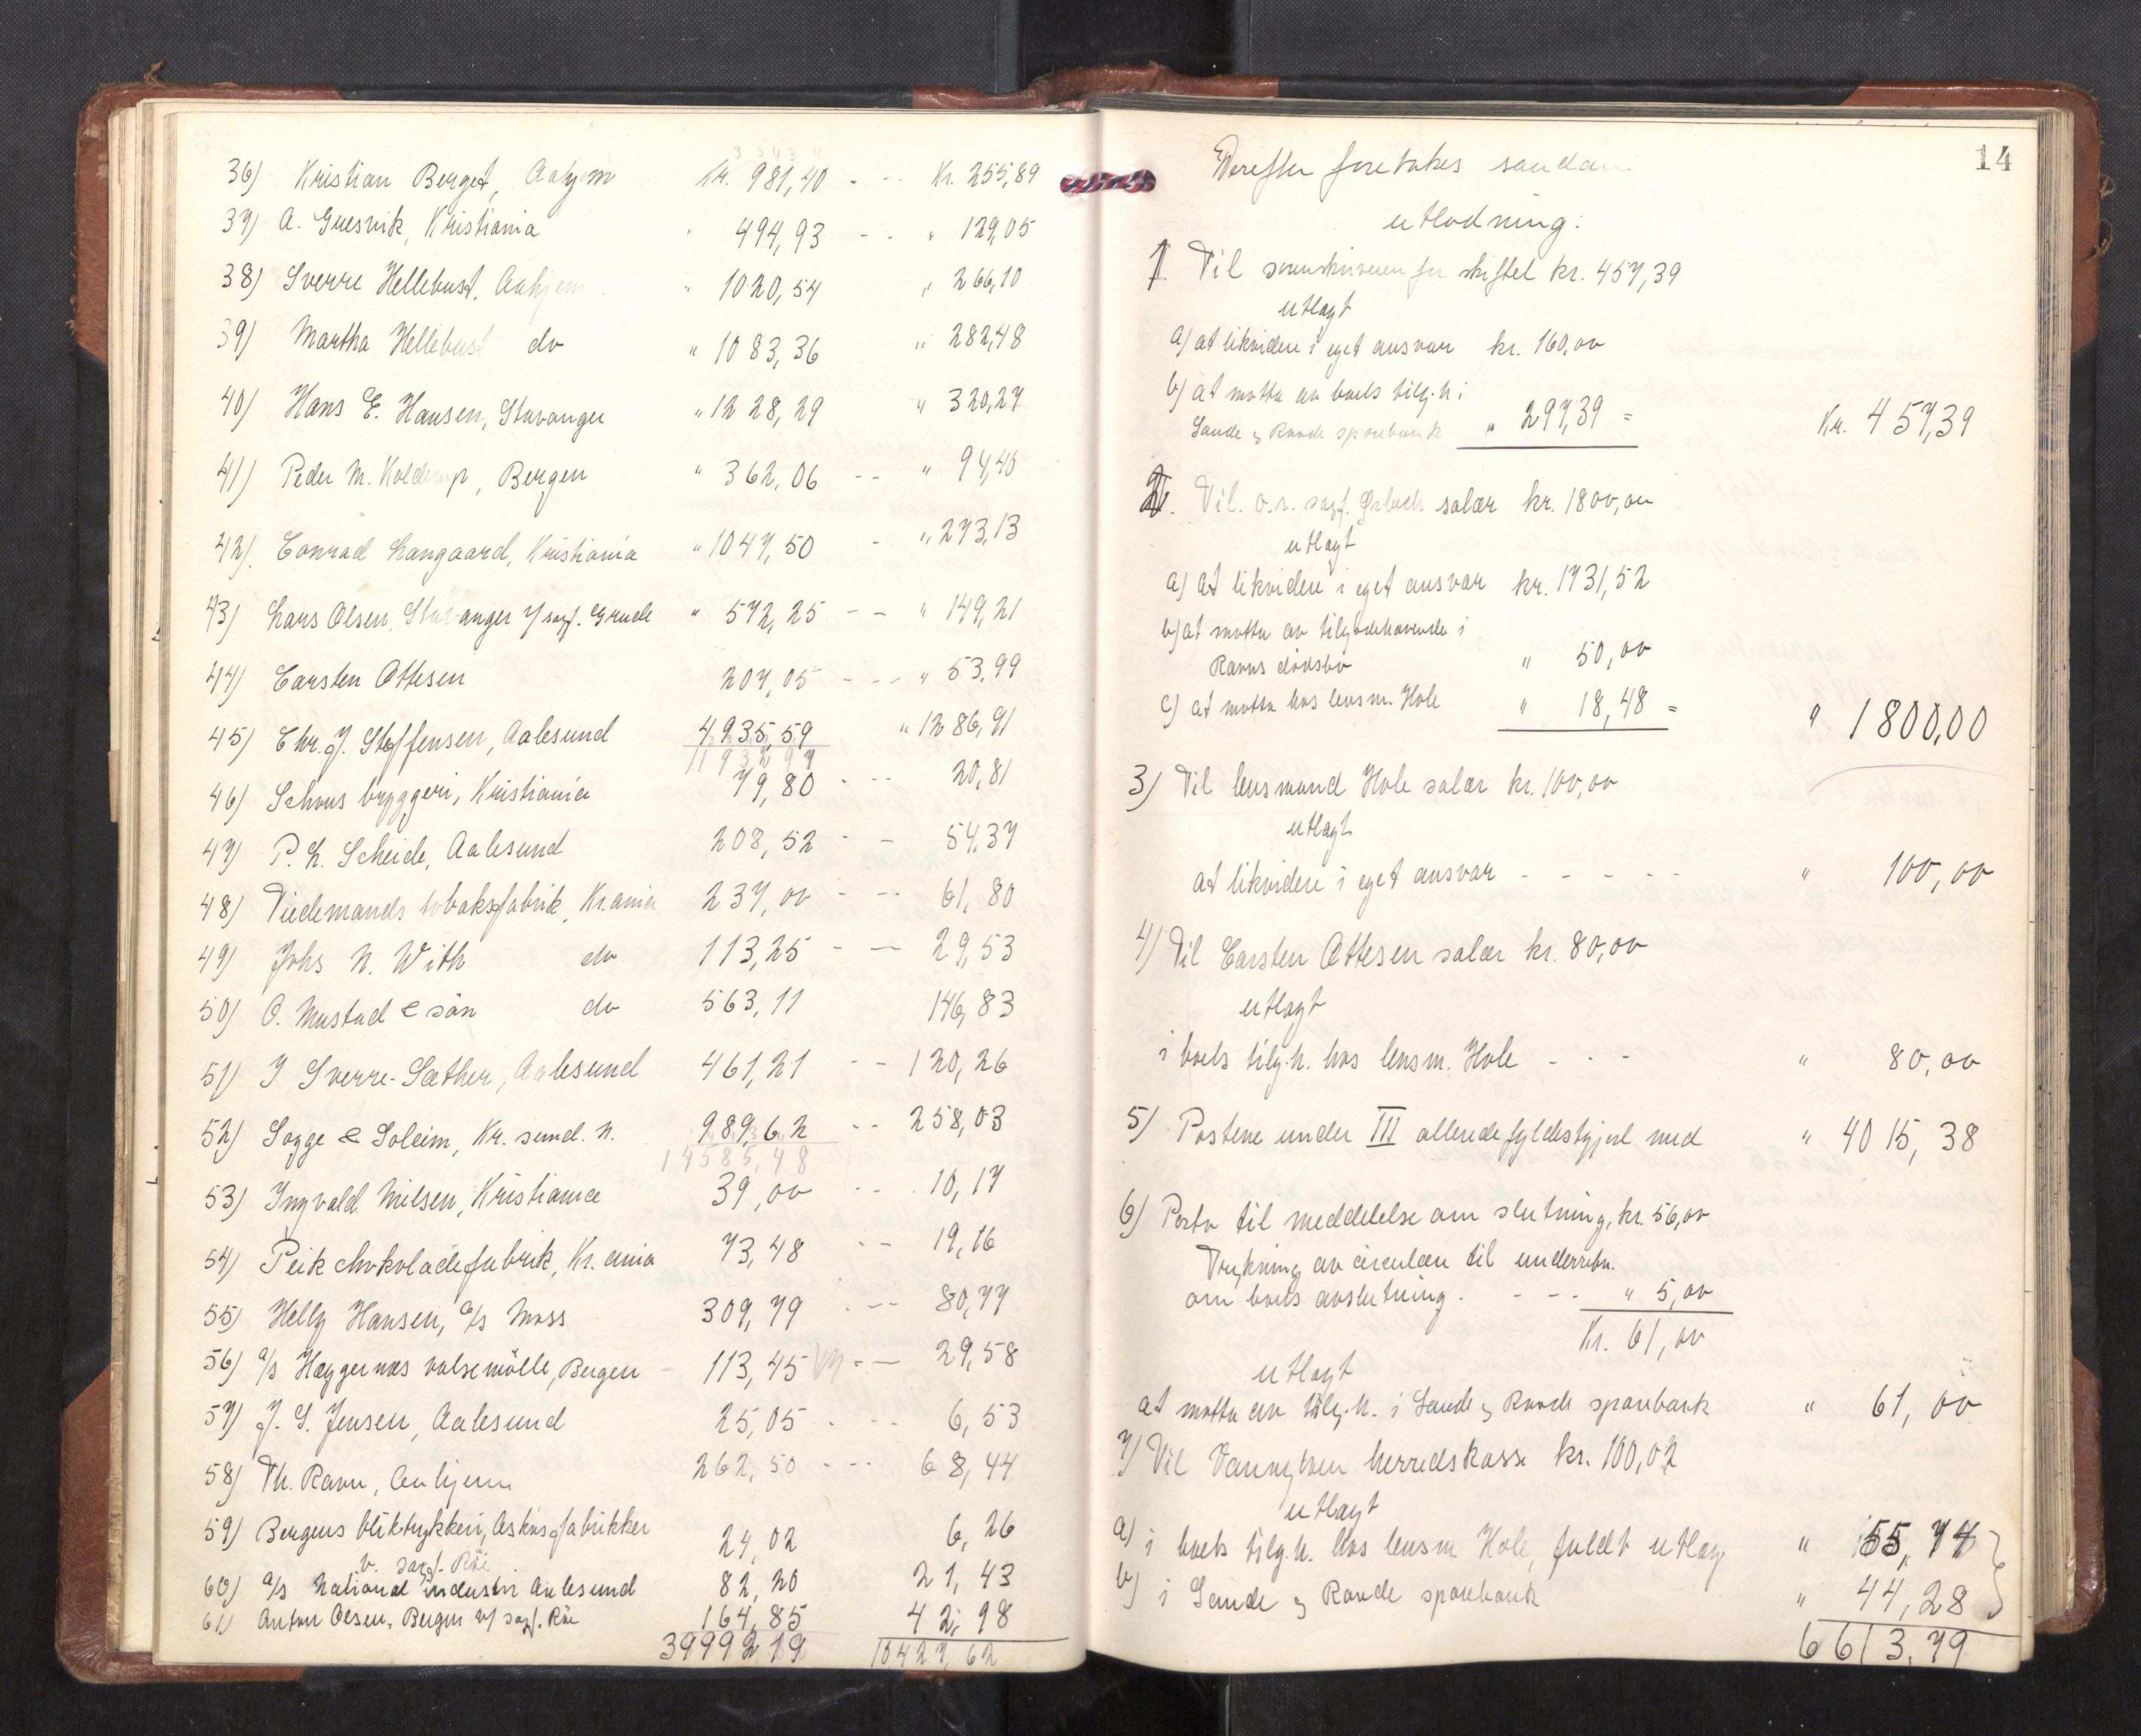 36) Kristian Berget, Aahjem Kr. 981,40 - -- Kr. 255,89
37) A. Gresvik, Kristiania " 494,93 - - " 129,05
38) Sverre Hellebust, Aahjem " 1020,54 " 266,10
39) Martha Hellebust do " 1083,36 " 282,48
40) Hans E. Hansen, Stavanger " 1228,29 " 320,27
41) Peder M. Kolderup, Bergen " 362,06 -- " 94,40
42) Conrad Langaard, Kristiania " 1047,50 - " 273,13
43) Lars Olsen, Stavanger v/ sagf. Grude " 572,25 -- " 149,21
44) Carsten Ottesen 207,05 - -- " 53,99
45) Chr. J. Steffensen, Aalesund 4935,59 " 1286,91
46) Schous bryggeri, Kristiania 79,80 - -- 20,81
47) P. L. Scheide, Aalesund 208,52 - - 54,37
48) Tiedemands tobaksfabrik, Kr.ania 237,00 - -- 61,80
49) Johs N. With do 113,25 - -- 29,53
50) O. Mustad & søn do 563,11 146,83
51) I Sverre-Sæther, Aalesund 461,21 -- 120,26
52) Sogge & Soleim, Kr. sund. N. 989,62 -- 258,03
14585,48
53) Ingvald Nielsen, Kristiania 39,00 -- 10,17
54) Peik chokoladefabrik, Kr.ania 73,48 -- 19,16
55) Helly Hansen, a/s Moss 309,79 - -- 80,77
56) a/s Hæggernæs valsemølle, Bergen - 113,45 - -- 29,58
57) J. S. Jensen, Aalesund 25,05 - -- 6,53
58) Th. Ravn, Aahjem 262,50 - -- 68,44
59) Bergens bliktrykkeri, Askøs fabrikker 24,02 6,26
v. sagf. Röe
60) a/s National industri Aalesund 82,20 21,43
61) Anton Olsen, Bergen v/ sagf. Röe 164,85 42,98
39992 19 10427,62
14
Derefter foretokes saadan
utlodning:
1. Til sorenskriveren for skiftet kr. 457,39
utlagt
a) at likvidere i eget ansvar kr. 160,00
b) at motta av boets tilg.h. i
Sande og Rovde sparebank " 297,39 = Kr. 457,39
2. Til o.r. sagf. salær kr. 1800,00
utlagt
a) at likvidere i eget ansvar kr. 1731,52
b) at motta av tilgodehavende i
Ravns dødsbo " 50,00
c) at motta hos lensm. Hole " 18,48 = " 1800,00
3) Til lensmand Hole salær kr. 100,00
utlagt
at likvidere i eget ansvar - - - - - " 100,00
4) Til Carsten Ottesen salær kr. 80,00
utlagt
i boets tilg.h. hos lensm. Hole - - - " 80,00
5) Postene under III allerede fyldestgjort med " 4015,38
6) Porto til meddelelse om slutning, kr. 56,00
Trykning av circulære til underretn.
om boets avslutning. - -- " 5,00
Kr. 61,00
utlagt
at motta av tilg.h. i Sande og Rovde sparebank " 61,00
7) Til Vannylven herredskasse kr. 100,02
utlagt
a) i boets tilg.h. hos lensm Hole, fuldt utlæg " 55,74
b) i Sande og Rovde sparebank " 44,28
6613,79